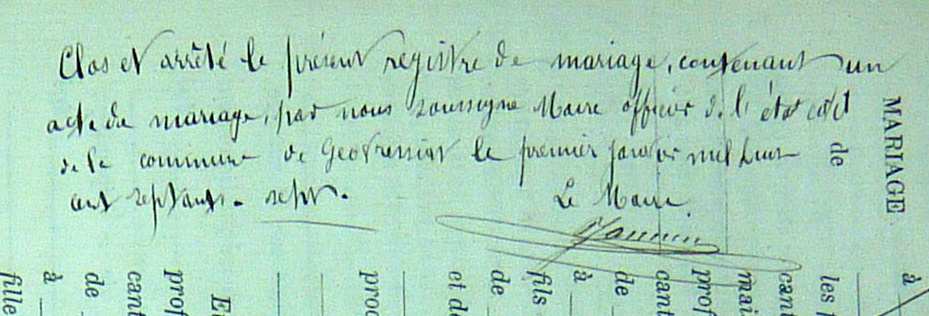 Clos et arrêté le présent registre de mariage, contenant un
acte de mariage, par nous soussigné Maire officier de l'état civil
de la commune de Geovressiat le premier janvier mil huit
cent septante-sept.
Le Maire
MARIAGE
de
à
les
cant
mai
prof
cant
de
à
fils
de
et de
proc
E
prof
cant
de
à
fille